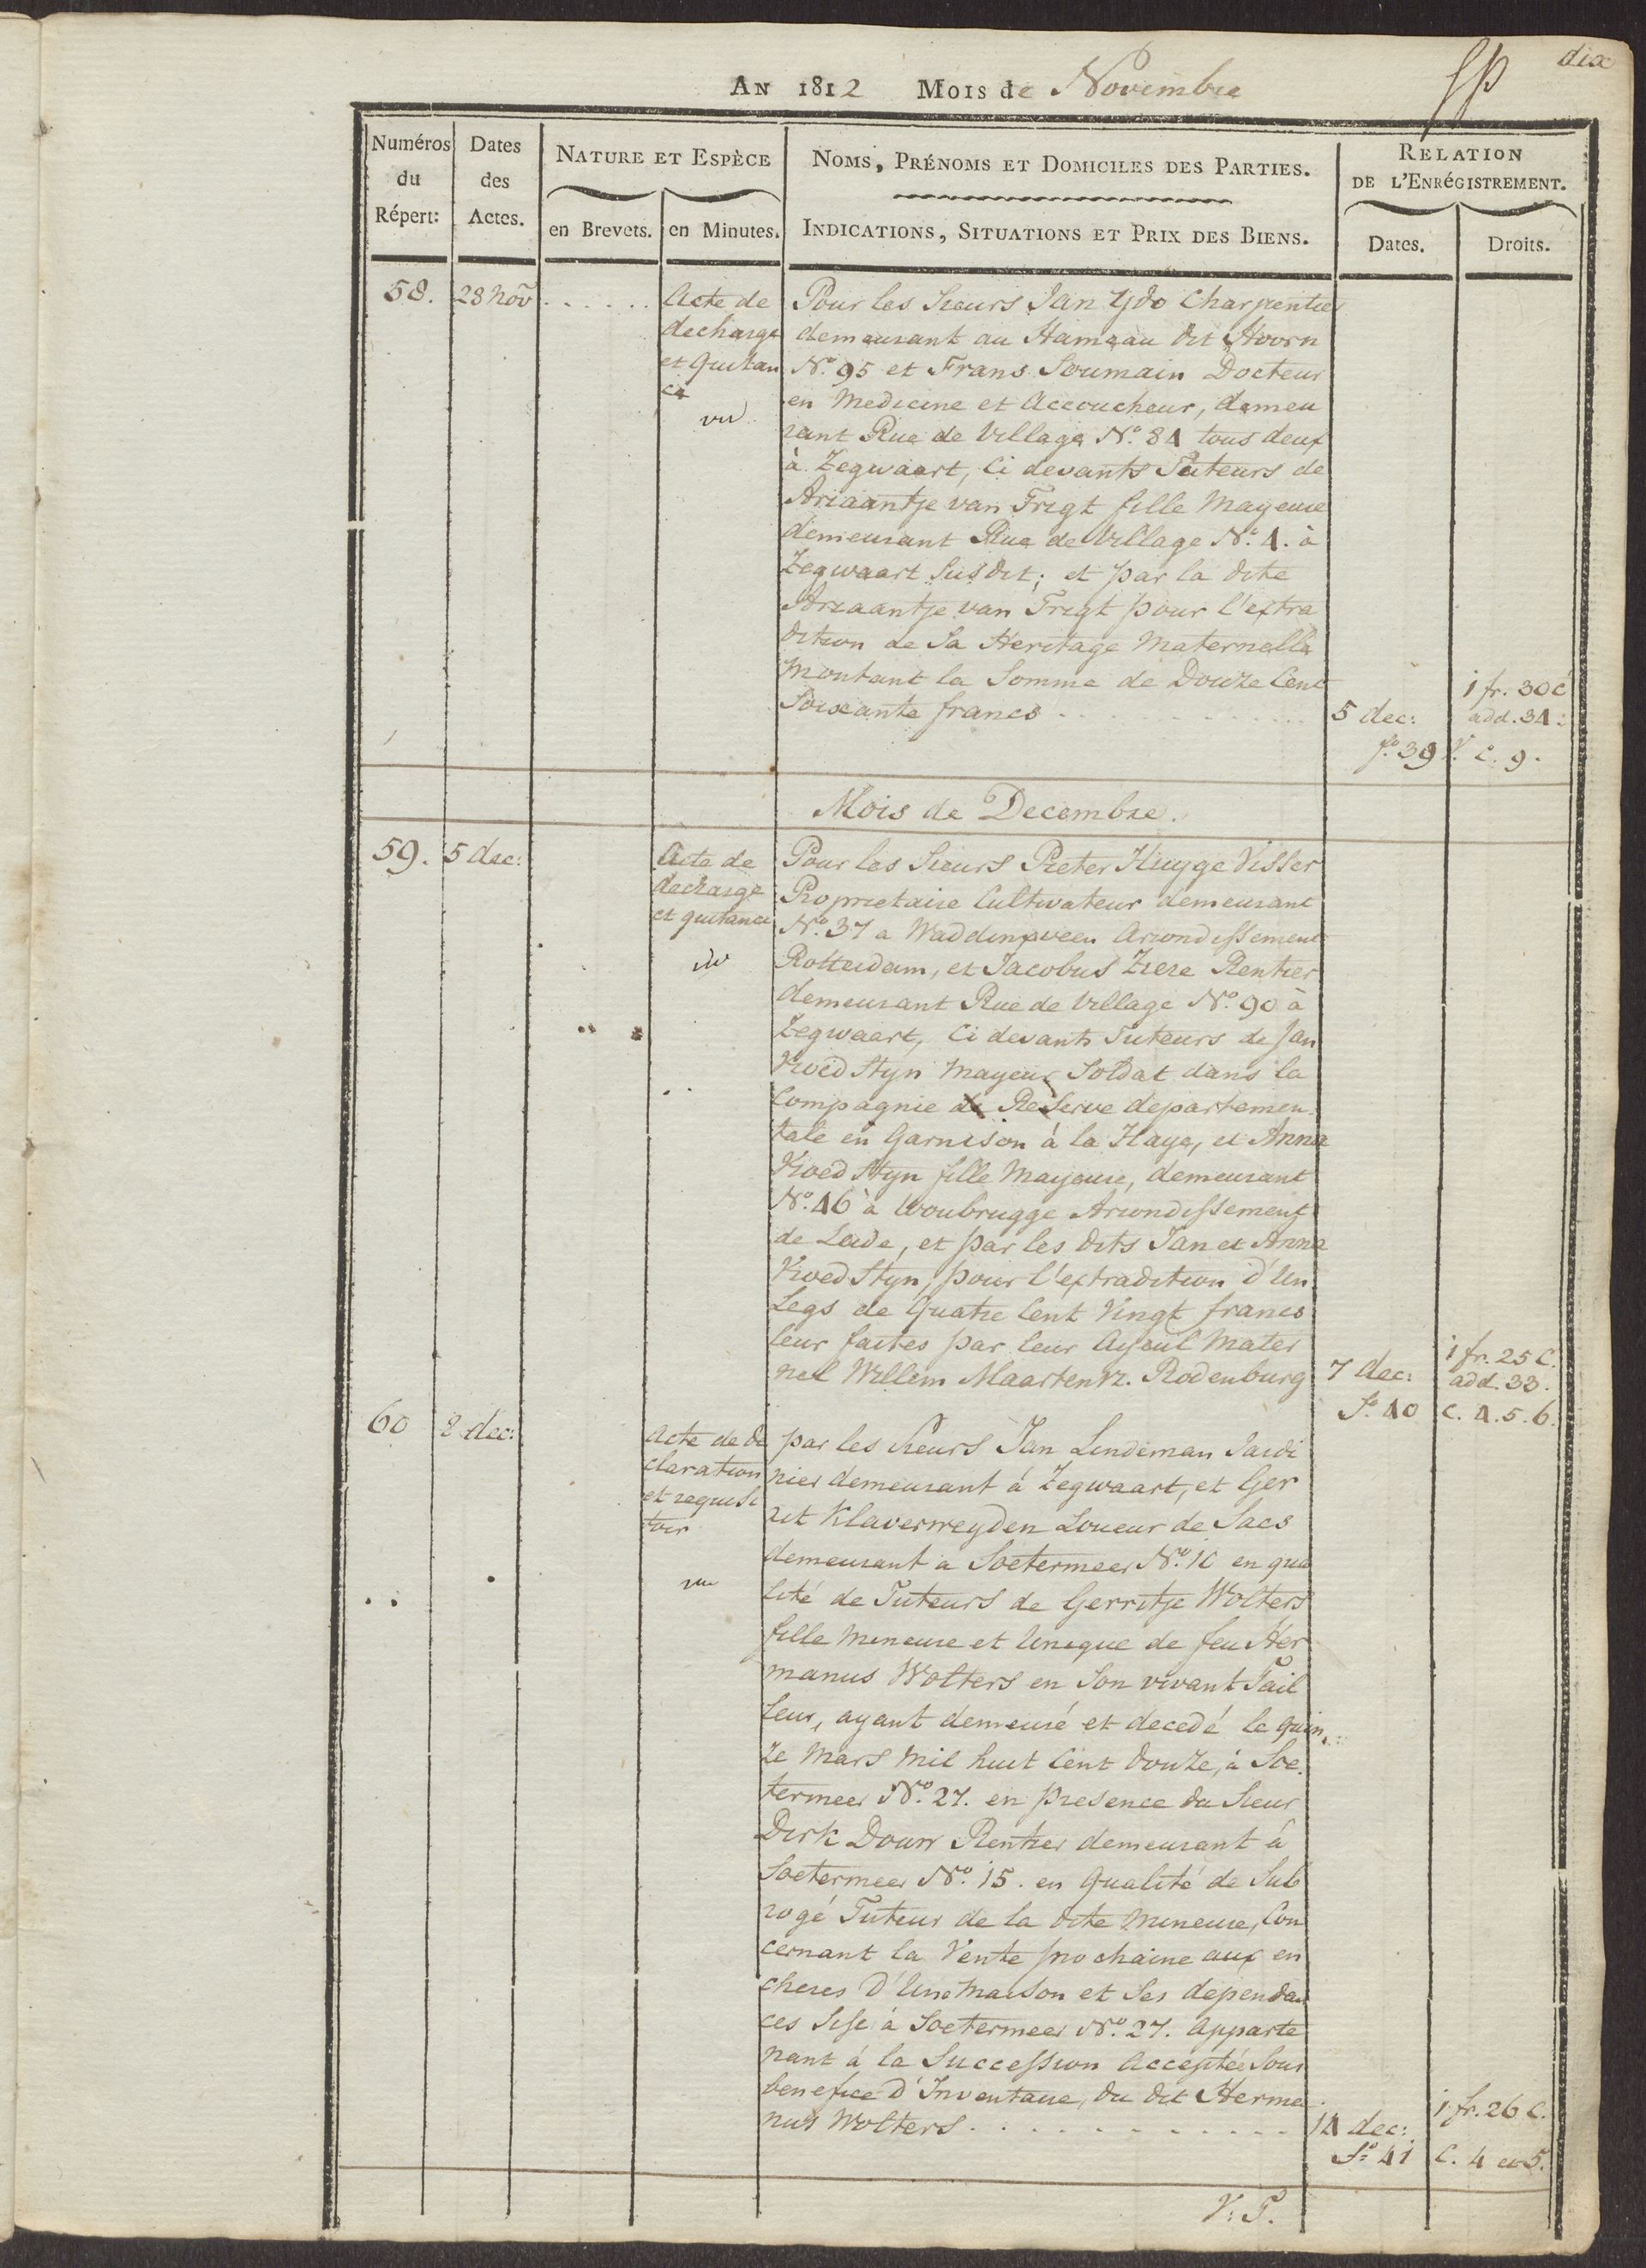 dix
An 1812 Mois de Novembre
Numéros du Répert:
Dates des Actes.
Nature et Espèce
en Brevets.
en Minutes.
Noms, Prénoms et Domiciles des Parties.
Indications, Situations et Prix des Biens.
Relation de l'Enrégistrement.
Dates.
Droits.
58. 28 Nov
Acte de
decharge
et Quitan
ce
vu
Pour les Sieurs Jan Ydo Charpentier
demeurant au Hameau dit Hoorn
N.º 95 et Frans Soumain Docteur
en Medicine et Accoucheur, demeu
rant Rue de Village N.º 84 tous deux
à Zegwaart, Ci devants Tuteurs de
Ariaantje van Trigt fille Mayeure
demeurant Rue de Village N.º 4. à
Zegwaart Susdit; et par la dite
Ariaantje van Trigt pour l'extra
dition de Sa Heritage Maternelle
Montant la Somme de Douze Cent
Soixante francs
5 dec:
f.º 39 V.
1 fr. 30 C
add. 34:
C. 9.
Mois de Decembre.
59. 5 dec:
Acte de
decharge
et quitance
vu
Pour les Sieurs Pieter Huyge Visser
Proprietaire Cultivateur demeurant
N.º 37 a Waddinxveen Arrondissement
Rotterdam, et Jacobus Ziere Rentier
demeurant Rue de Village N.º 90 à
Zegwaart, Ci devants Tuteurs de Jan
Kroedstyn Mayeur Soldat dans la
Compagnie de Reserve departemen
tale en Garnison à la Haye, et Anna
Kroedstyn fille Mayeure, demeurant
N.º 46 à Woubrugge Arrondissement
de Leide, et par les dits Jan et Anna
Kroedstyn, pour l'extradition d'Un
Legs de Quatre Cent Vingt francs
leur faites par leur Ayeuil Mater
nel Willem Maartensz. Rodenburg
7 dec:
f.º 40
1 fr. 25 C.
add. 33.
C. 4. 5. 6.
60 8 dec:
Acte de de
claration
et requisi
toir
vu
par les Sieurs Jan Lindeman Jardi
nier demeurant à Zegwaart, et Ger
rit Klaverweyden Loueur de Sacs
demeurant a Soetermeer N.º 10 en qua
lité de Tuteurs de Gerritje Wolters
fille Mineure et Unique de feu Her
manus Wolters en Son vivant Tail
leur, ayant demeuré et decedé le quin
ze Mars Mil huit Cent Douze, à Soe
termeer N.º 27. en presence du Sieur
Dirk Douw Rentier demeurant à
Soetermeer N.º 15. en Qualité de Sub
rogé Tuteur de la dite Mineure, Con
cernant la Vente prochaine aux en
cheres D'Une Maison et Ses dependan
ces Sise à Soetermeer N.º 27. Apparte
nant à la Succession Acceptée Sous
benefice D'Inventaire, du dit Herma
nus Wolters
14 dec:
f.º 41
1 fr. 26 C.
C. 4 et 5.
V: T.